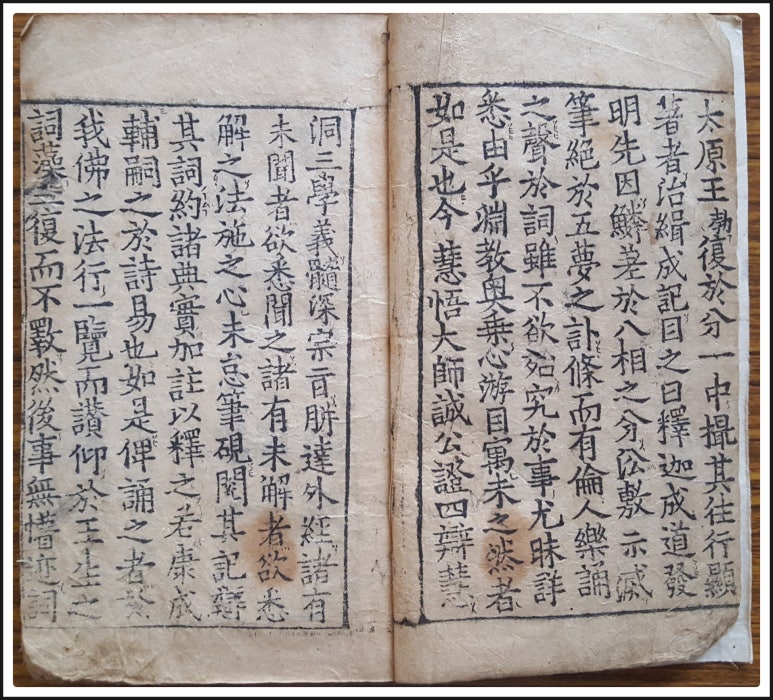 太原王勃復於分一中撮其往行顯
著者治緝成記目之曰釋迦成道發
明先因鱗差於八相之分敷示滅
筆絕於五夢之訃條而有倫人樂誦
之聲於詞雖不欲究於事尤昧詳
悉由乎淵教奧乗心游目寓未之者
如是也今慧悟大師誠公證四辯慧
洞三學義髓深宗旨胼達外經諸有
未聞者欲悉聞之諸有未解者欲悉
解之法施之心未怠筆硯閱其記辭
其詞約諸典實加註以釋之若康成
輔嗣之於詩易也如是俾誦之者於
我佛之法行一覽而讃仰於王生之
詞藻三復而不斁然後事無惛迹詞